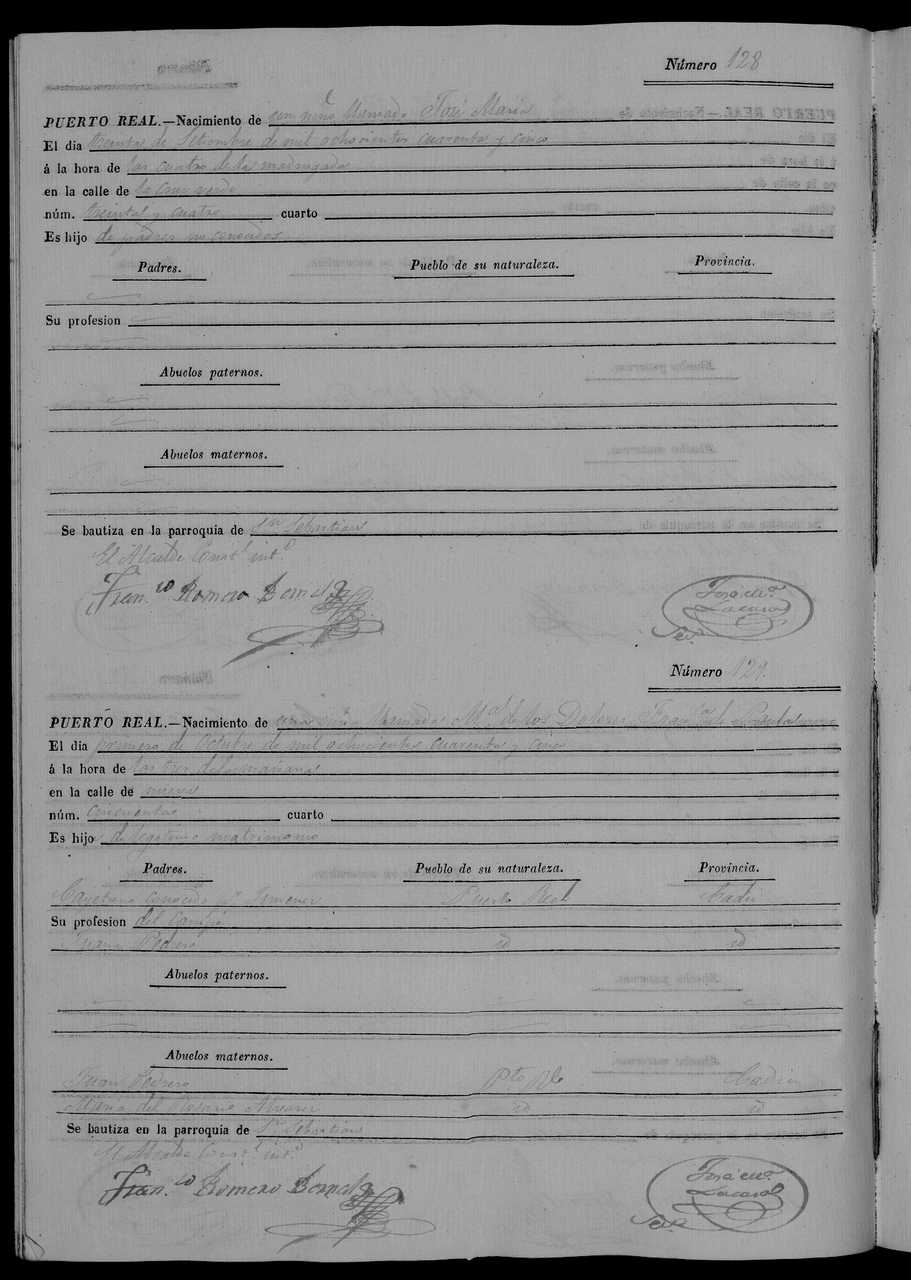 Número 128
PUERTO REAL.—Nacimiento de un niño llamado José María
El dia treinta de Setiembre de mil ochocientos cuarenta y cinco
á la hora de las cuatro de la madrugada
en la calle de la Cruz verde
núm. treinta y cuatro cuarto
Es hijo de padres no conocidos
Padres. Pueblo de su naturaleza. Provincia.
Su profesion
Abuelos paternos.
Abuelos maternos.
Se bautiza en la parroquia de Sn Sebastian
El Alcalde Const.l int.o
Fran.co Romero
Número 129.
PUERTO REAL.—Nacimiento de una niña llamada M.a de los Dolores Fran.ca de
El dia primero de Octubre de mil ochocientos cuarenta y cinco
á la hora de las tres de la mañana
en la calle de nueva
núm. cincuenta cuarto
Es hijo de legitimo matrimonio
Padres. Pueblo de su naturaleza. Provincia.
Cayetano conocido p.r Jimenez Puerto Real Cadiz
Su profesion del campo
Juana id id
Abuelos paternos.
Abuelos maternos.
Juan Pto Rl Cadiz
Maria del Rosario Alvarez id id
Se bautiza en la parroquia de Sn Sebastian
El Alcalde Const.l int.o
Fran.co Romero